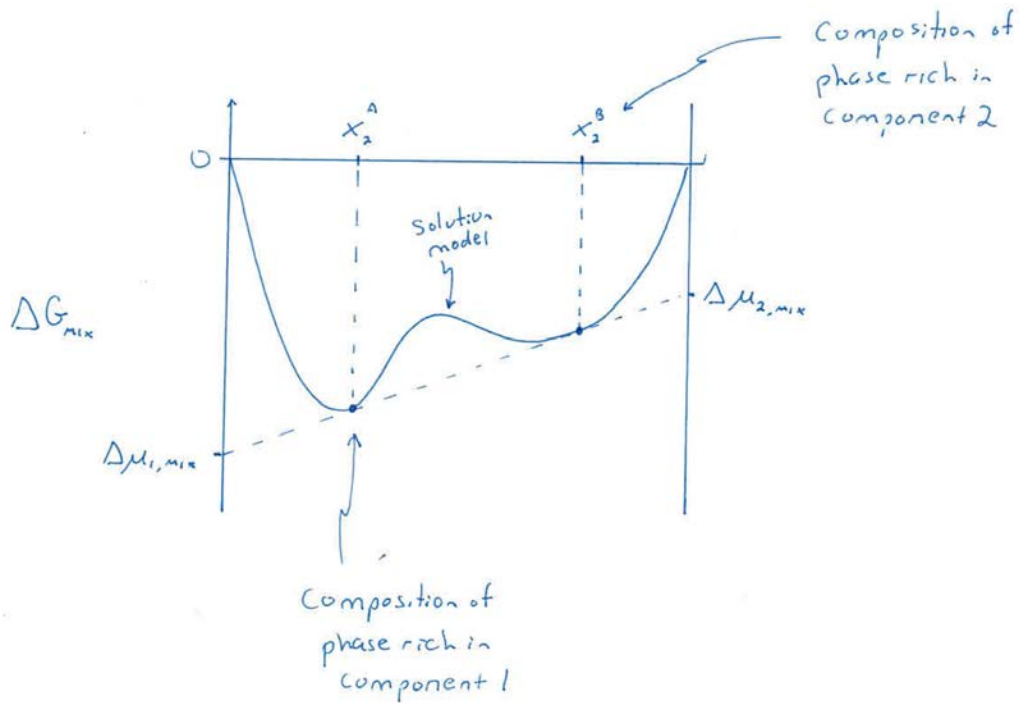 Composition of
phase rich in
Component 2
x₂ᴬ
x₂ᴮ
0
Solution
model
ΔG_mix
Δμ₂,mix
Δμ₁,mix
Composition of
phase rich in
Component 1